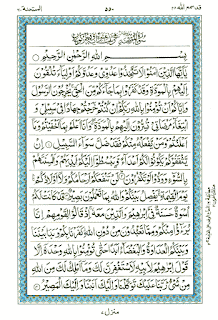 قد سمع الله ٢٨ ٥٥٠ الممتحنة ٦٠
بِسْمِ اللهِ الرَّحْمٰنِ الرَّحِيْمِ
يٰۤاَيُّهَا الَّذِيْنَ اٰمَنُوْا لَا تَتَّخِذُوْا عَدُوِّيْ وَعَدُوَّكُمْ اَوْلِيَآءَ تُلْقُوْنَ
اِلَيْهِمْ بِالْمَوَدَّةِ وَقَدْ كَفَرُوْا بِمَا جَآءَكُمْ مِّنَ الْحَقِّ يُخْرِجُوْنَ الرَّسُوْلَ
وَاِيَّاكُمْ اَنْ تُؤْمِنُوْا بِاللهِ رَبِّكُمْ اِنْ كُنْتُمْ خَرَجْتُمْ جِهَادًا فِيْ سَبِيْلِيْ وَ
ابْتِغَآءَ مَرْضَاتِيْ تُسِرُّوْنَ اِلَيْهِمْ بِالْمَوَدَّةِ وَاَنَا اَعْلَمُ بِمَاۤ اَخْفَيْتُمْ وَمَاۤ
اَعْلَنْتُمْ وَمَنْ يَّفْعَلْهُ مِنْكُمْ فَقَدْ ضَلَّ سَوَآءَ السَّبِيْلِ
اِنْ يَّثْقَفُوْكُمْ يَكُوْنُوْا لَكُمْ اَعْدَآءً وَّيَبْسُطُوْۤا اِلَيْكُمْ اَيْدِيَهُمْ وَاَلْسِنَتَهُمْ
بِالسُّوْٓءِ وَوَدُّوْا لَوْ تَكْفُرُوْنَ لَنْ تَنْفَعَكُمْ اَرْحَامُكُمْ وَلَاۤ اَوْلَادُكُمْ
يَوْمَ الْقِيٰمَةِ يَفْصِلُ بَيْنَكُمْ وَاللهُ بِمَا تَعْمَلُوْنَ بَصِيْرٌ قَدْ كَانَتْ لَكُمْ
اُسْوَةٌ حَسَنَةٌ فِيْۤ اِبْرٰهِيْمَ وَالَّذِيْنَ مَعَهٗ اِذْ قَالُوْا لِقَوْمِهِمْ اِنَّا
بُرَءٰٓؤُا مِنْكُمْ وَمِمَّا تَعْبُدُوْنَ مِنْ دُوْنِ اللهِ كَفَرْنَا بِكُمْ وَبَدَا بَيْنَنَا
وَبَيْنَكُمُ الْعَدَاوَةُ وَالْبَغْضَآءُ اَبَدًا حَتّٰى تُؤْمِنُوْا بِاللهِ وَحْدَهٗۤ اِلَّا
قَوْلَ اِبْرٰهِيْمَ لِاَبِيْهِ لَاَسْتَغْفِرَنَّ لَكَ وَمَاۤ اَمْلِكُ لَكَ مِنَ اللهِ
مِنْ شَيْءٍ رَبَّنَا عَلَيْكَ تَوَكَّلْنَا وَاِلَيْكَ اَنَبْنَا وَاِلَيْكَ الْمَصِيْرُ
منزل ٧